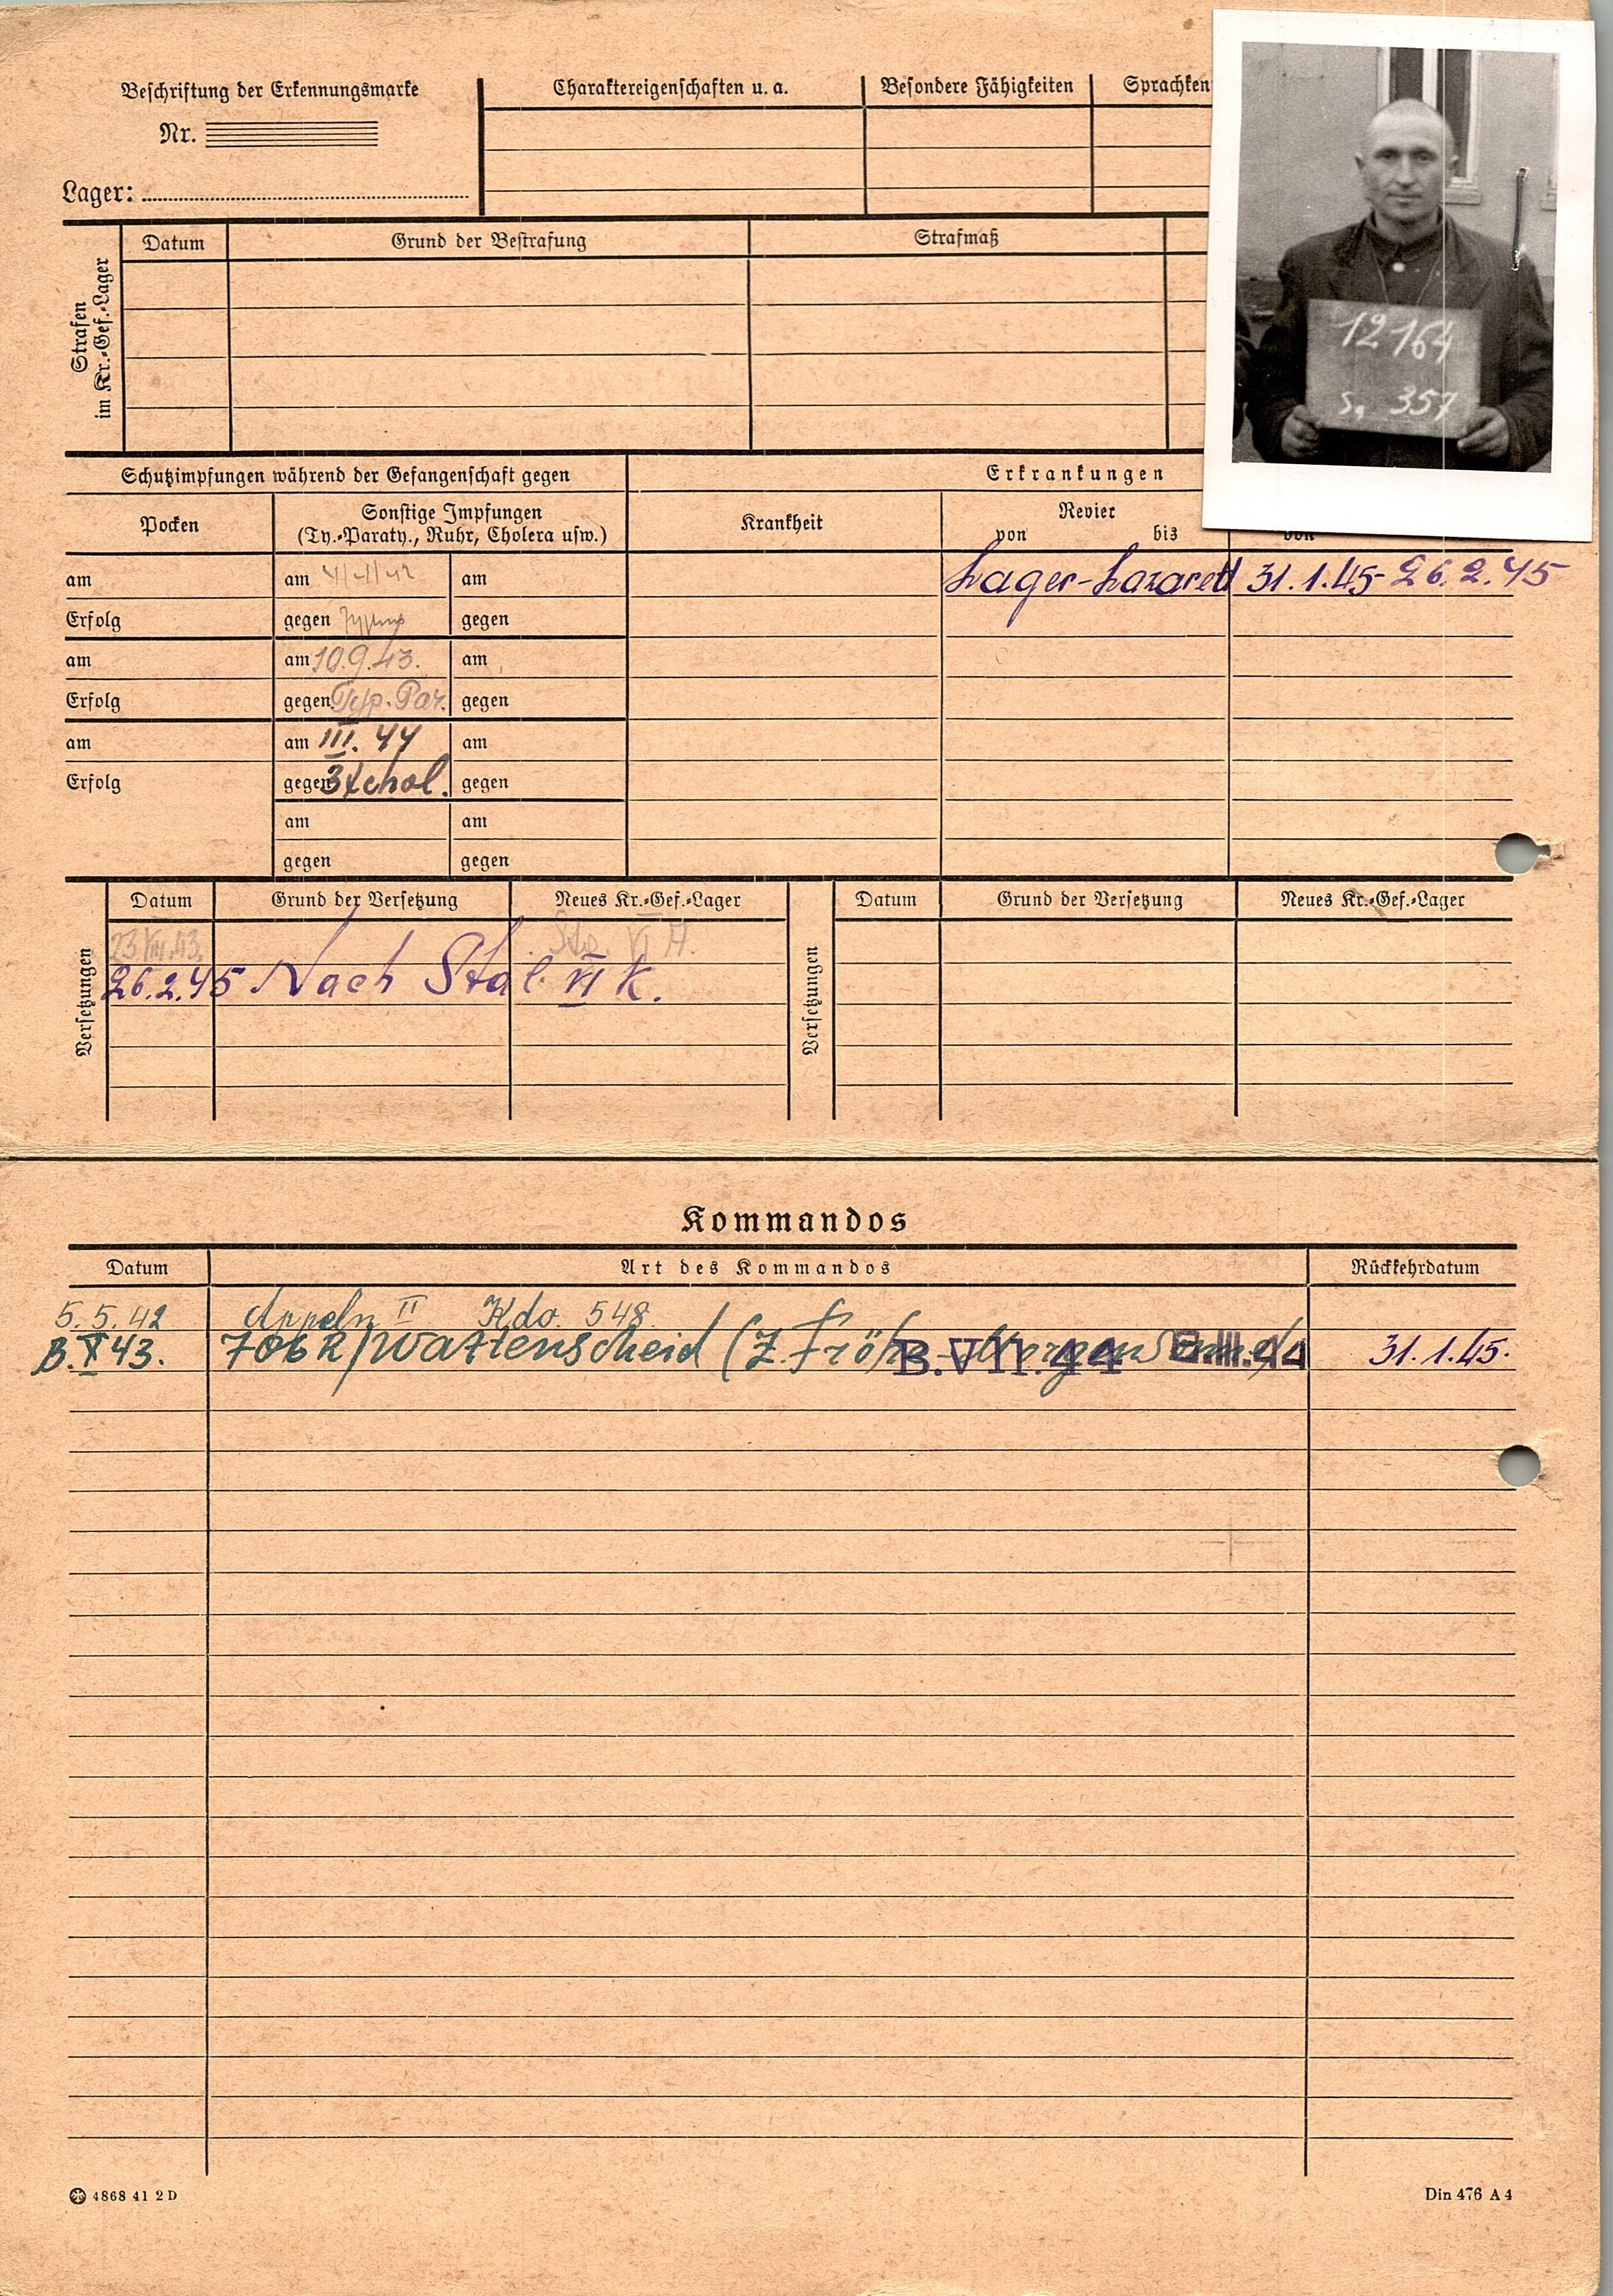 Beschriftung der Erkennungsmarke
Nr.
Lager:
Charaktereigenschaften u. a.
Besondere Fähigkeiten
Sprachken
12164
S, 357
Strafen
im Kr.-Gef.-Lager
Datum
Grund der Bestrafung
Strafmaß
Schutzimpfungen während der Gefangenschaft gegen
Erkrankungen
Pocken
Sonstige Impfungen
(Ty.-Paraty., Ruhr, Cholera usw.)
Krankheit
Revier
von bis
von
am am am
Lager-Lazarett 31.1.45-26.2.45
Erfolg gegen gegen
am am 10.9.43. am
Erfolg gegen Typ. Par. gegen
am am III. 44 am
Erfolg gegen 3x chol. gegen
am am
gegen gegen
Versetzungen
Datum Grund der Versetzung Neues Kr.-Gef.-Lager
23.VIII.43. VI A.
26.2.45 Nach Stal. VI K.
Versetzungen
Datum Grund der Versetzung Neues Kr.-Gef.-Lager
Kommandos
Datum Art des Kommandos Rückkehrdatum
5.5.42 Appeln II Kdo. 548.
B.X 43. 706 R/Wattenscheid (Z. Fröhl. Morgensonne) 31.1.45.
B.VII.44 B.III.44
4868 41 2 D
Din 476 A 4